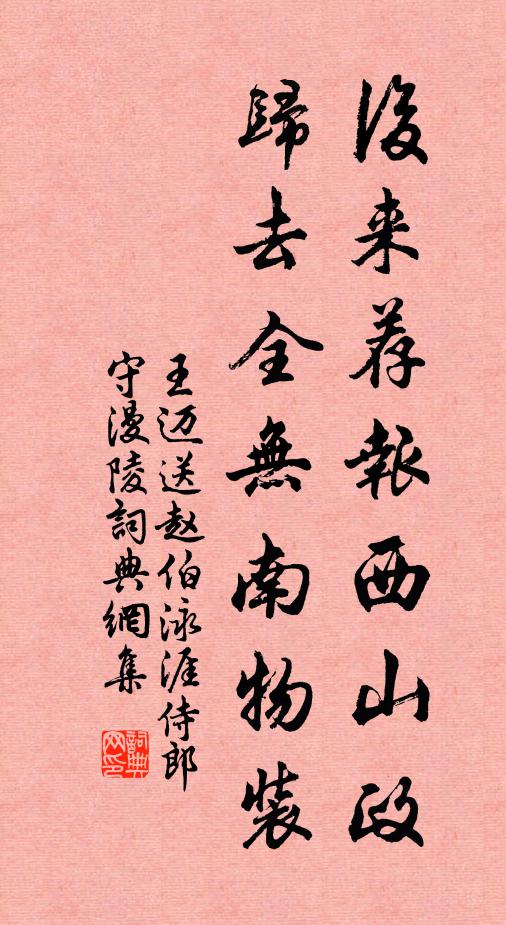 後来荐報西山政
歸去全無南物裝
王迈送赵伯泳涯侍郎
守漫陵詞典網集
詞典
网印